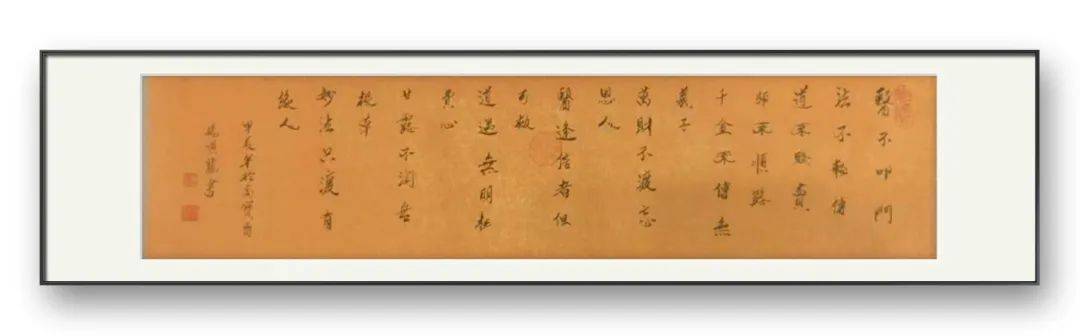 醫不叩門
法不輕傳
道不賤賣
師不順路
千金不傳無
義子
萬財不渡忘
恩人
醫逢信者但
可救
道遇無明枉
費心
甘露不潤無
根草
妙法只渡有
緣人
甲辰年於
書